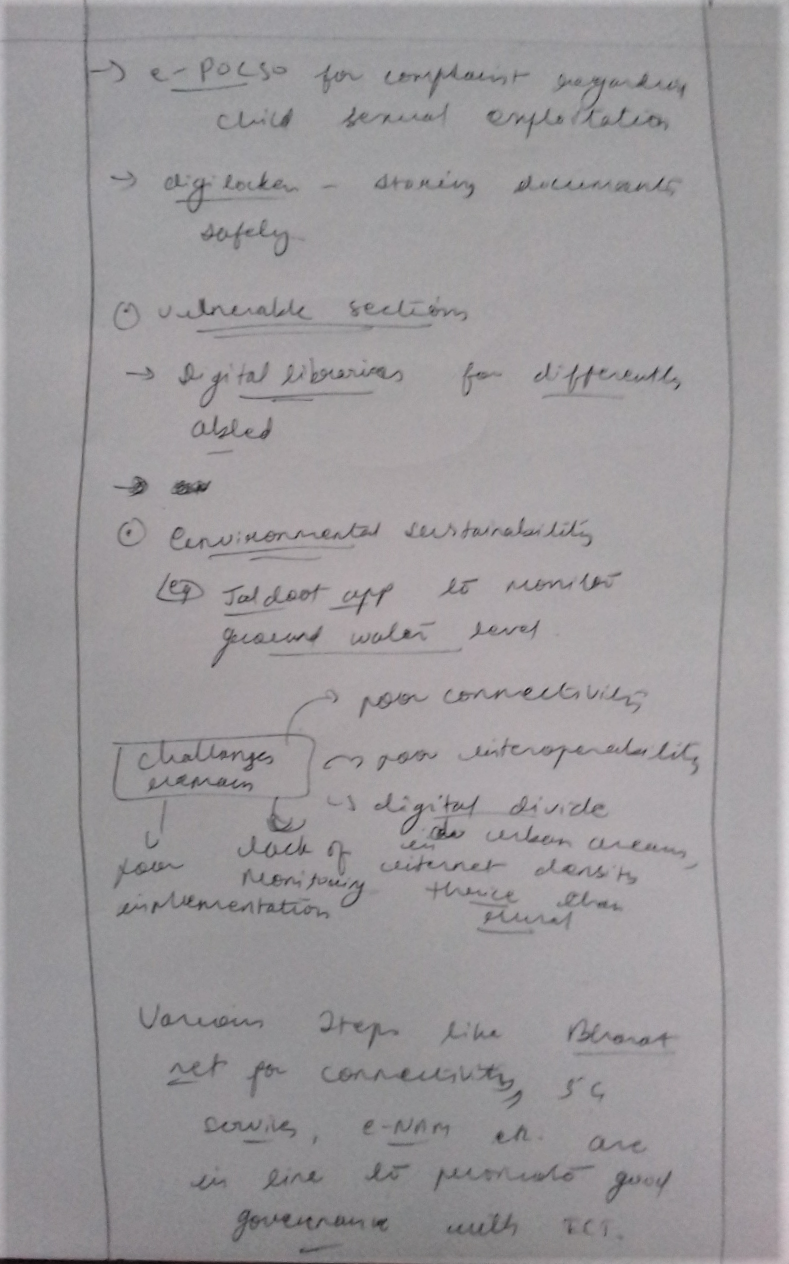 → e-POCSO for complaint regarding
child sexual exploitation
→ digilocker - storing documents
safely.
⊙ vulnerable sections
→ Digital libraries for differently
abled
→
⊙ environmental sustainability
(eg) Jaldoot app to monitor
ground water level.
→ poor connectivity
challenges
remain
→ poor interoperability
↳ digital divide
in urban areas,
internet density
thrice than
rural
lack of
monitoring
poor
implementation
Various steps like Bharat
net for connectivity, 5G
services, e-NAM etc. are
in line to promote good
governance with ICT.